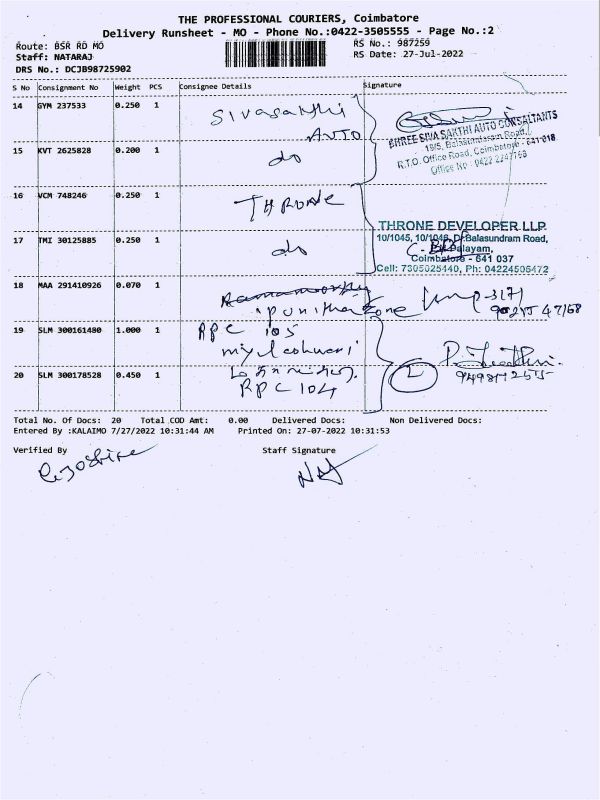 THE PROFESSIONAL COURIERS, Coimbatore
Delivery Runsheet - MO - Phone No.:0422-3505555 - Page No.:2
Route: BSR RD MO
RS No.: 987259
Staff: NATARAJ
RS Date: 27-Jul-2022
DRS No.: DCJB98725902
S No Consignment No Weight PCS Consignee Details Signature
14 GYM 237533 0.250 1 Sivasakthi Auto
SHREE SIVA SAKTHI AUTO CONSULTANTS
18/5, Balasundaram Road,
R.T.O. Office Road, Coimbatore - 641 018.
Office No : 0422 2247768
15 KVT 2625828 0.200 1 do
16 VCM 748246 0.250 1 THRONE
THRONE DEVELOPER LLP
10/1045, 10/1046, Dr.Balasundram Road,
17 TMI 30125885 0.250 1 do
Coimbatore - 641 037
Cell: 7305025440, Ph: 04224506472
18 MAA 291410926 0.070 1
19 SLM 300161480 1.000 1 RPC 105
20 SLM 300178528 0.450 1 RPC 104
2
Total No. Of Docs: 20 Total COD Amt: 0.00 Delivered Docs: Non Delivered Docs:
Entered By :KALAIMO 7/27/2022 10:31:44 AM Printed On: 27-07-2022 10:31:53
Verified By Staff Signature